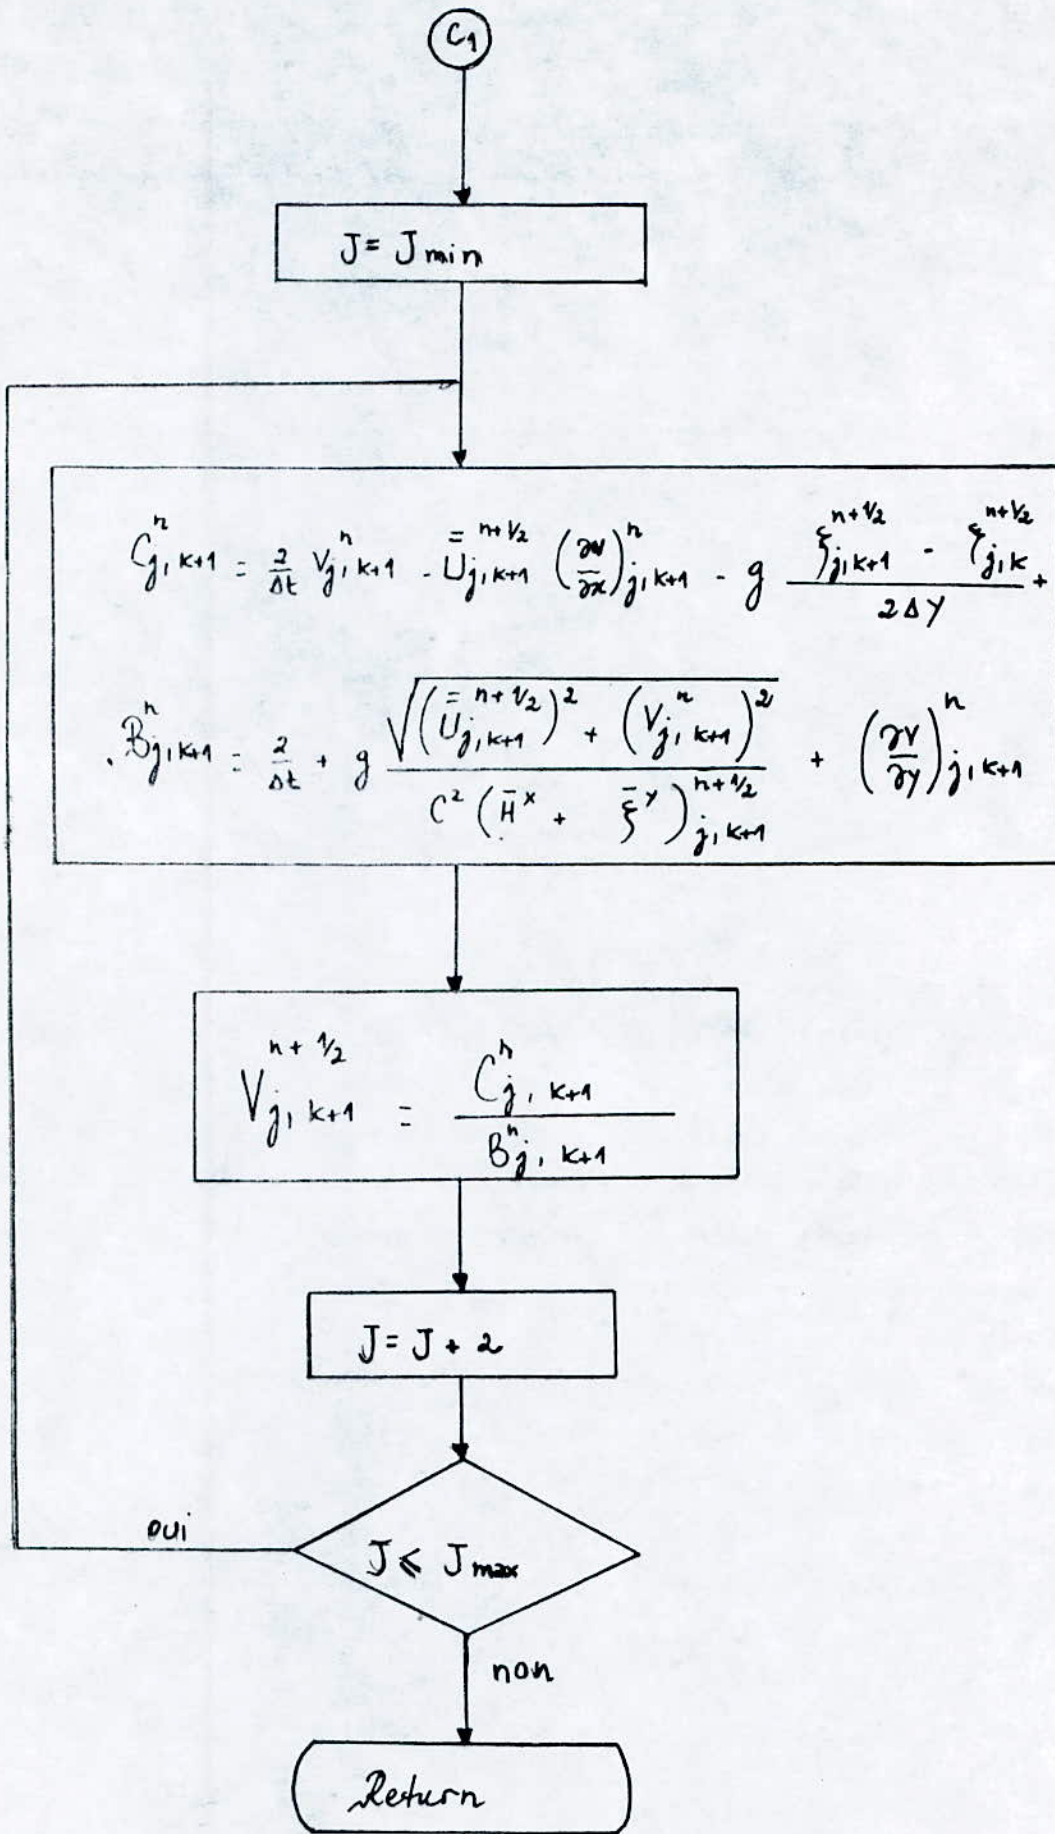 C₁
J = J min
C^n_{j,k+1} = 2/Δt V^n_{j,k+1} - U̿^{n+1/2}_{j,k+1} (∂v/∂x)^n_{j,k+1} - g (ξ^{n+1/2}_{j,k+1} - ξ^{n+1/2}_{j,k})/(2ΔY) +
B^n_{j,k+1} = 2/Δt + g √((U̿^{n+1/2}_{j,k+1})² + (V^n_{j,k+1})²)/(C² (H̄^x + ξ̄^y)^{n+1/2}_{j,k+1}) + (∂V/∂y)^n_{j,k+1}
V^{n+1/2}_{j,k+1} = C^n_{j,k+1}/B^n_{j,k+1}
J = J + 2
oui
J ≤ J max
non
Return